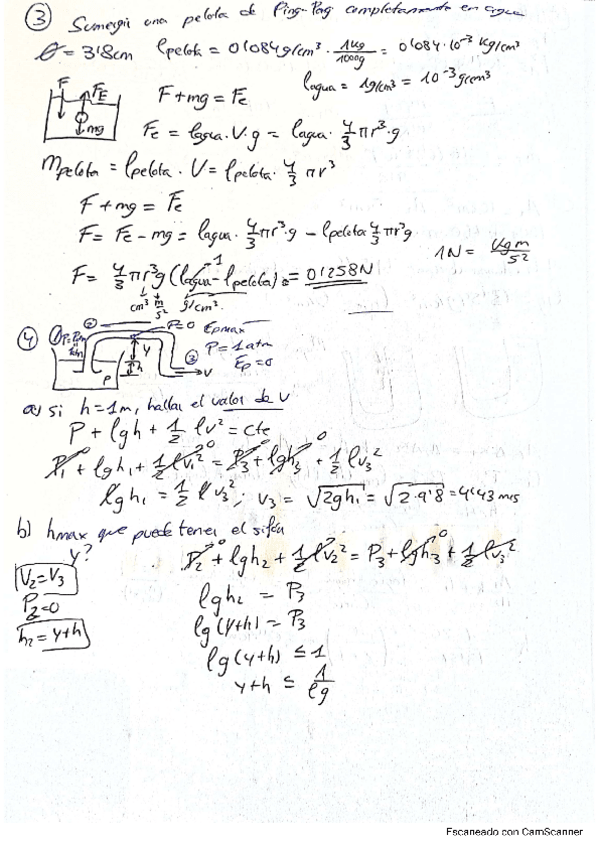 ③ Sumergir una pelota de Ping-Pog completamente en agua
Ø = 3'8cm ρpelota = 0'084g/cm³ · 1kg/1000g = 0'084·10⁻³ Kg/cm³
ρagua = 1g/cm³ = 10⁻³g/cm³
F FE
mg
F+mg = Fe
Fe = ρagua·V·g = ρagua·4/3πr³·g
mpelota = ρpelota · V = ρpelota · 4/3 πr³
F+mg = Fe
F = Fe - mg = ρagua·4/3πr³·g - ρpelota 4/3πr³g
1N = Kg m/s²
F = 4/3πr³g (ρagua - ρpelota) = 0'258N
cm³ m/s² g/cm³
④ ① ② P=0 Epmax
y P=1atm
h ③ Ep=0
P v
a) si h=1m, hallar el valor de v
P + ρgh + 1/2 ρv² = cte
P₁ + ρgh₁ + 1/2 ρv₁² = P₃ + ρgh₃ + 1/2 ρv₃²
ρgh₁ = 1/2 ρv₃² ; v₃ = √2gh₁ = √2·9'8 = 4'43 m/s
b) hmax que puede tener el sifón
y?
V₂=V₃
P₂=0
h₂=y+h
P₂ + ρgh₂ + 1/2 ρv₂² = P₃ + ρgh₃ + 1/2 ρv₃²
ρgh₂ = P₃
ρg(y+h) = P₃
ρg(y+h) ≤ 1
y+h ≤ 1/ρg
Escaneado con CamScanner